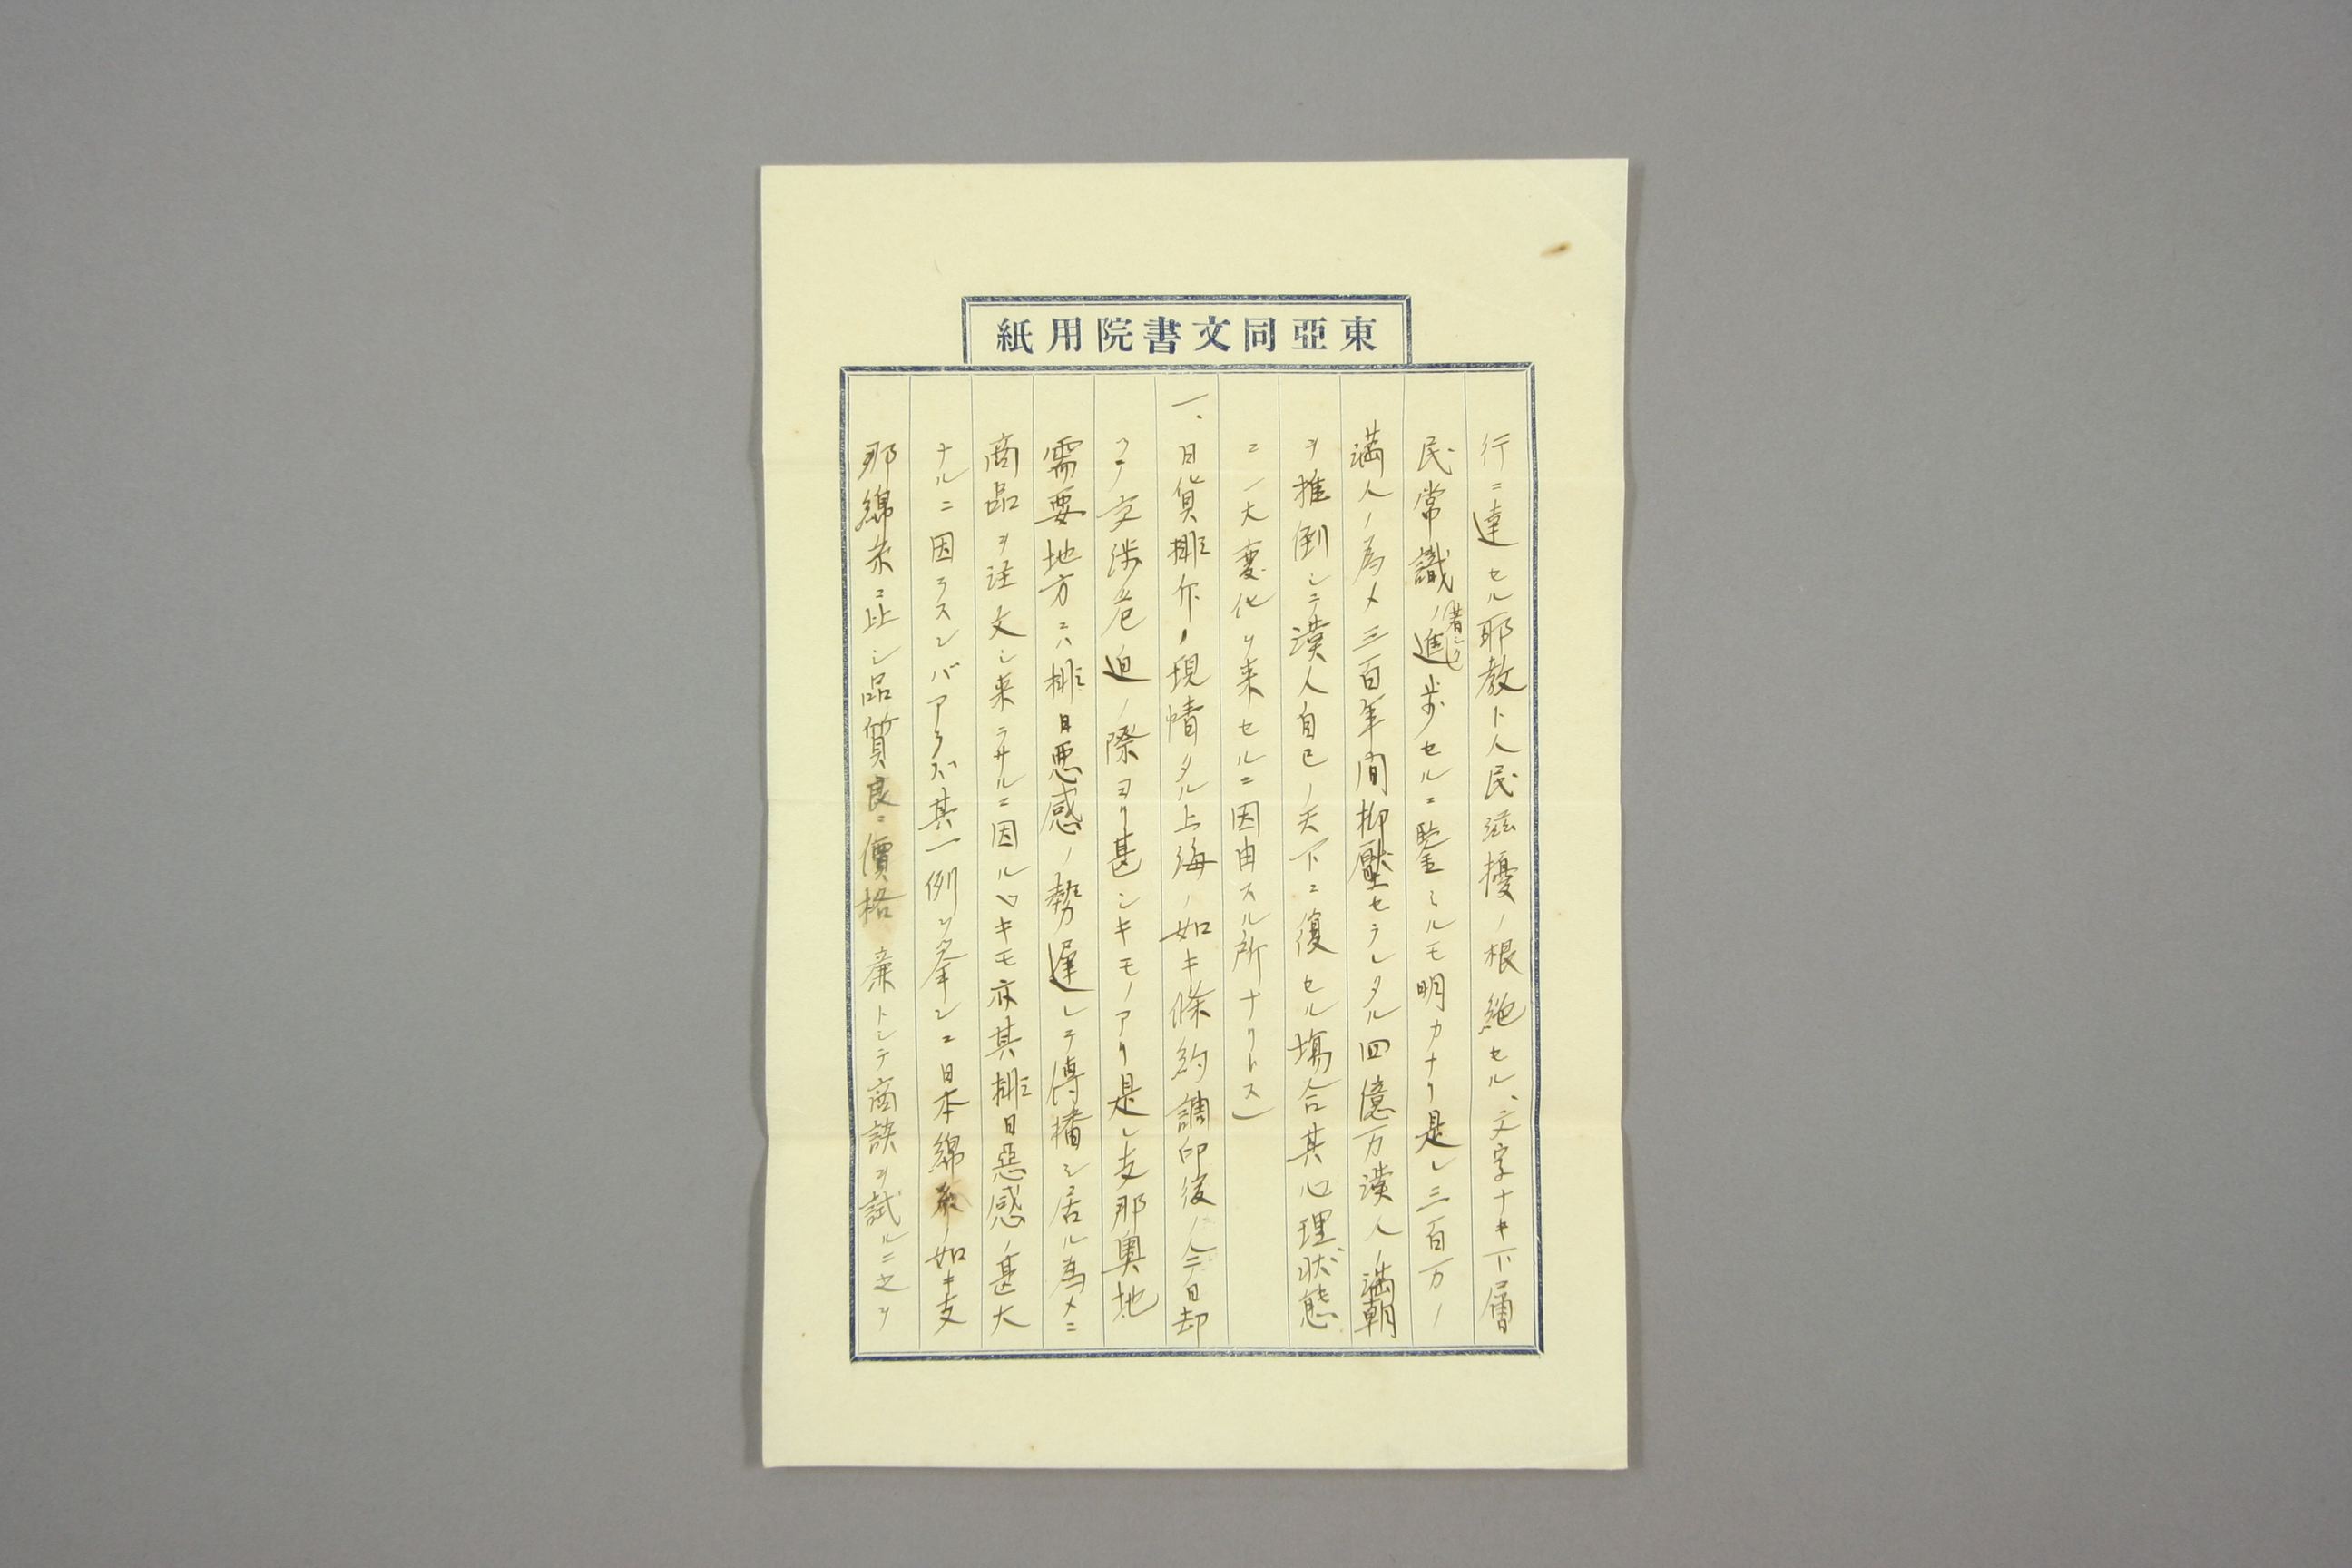 東亞同文書院用紙
行ニ達セル耶教ト人民滋擾ノ根絶セル、文字ナキ下層
民常識ノ著シク進歩セルニ鑒ミルモ明カナリ是レ三百万ノ
満人ノ為メ三百年間抑壓セラレタル四億万漢人ノ満朝
ヲ推倒シテ漢人自己ノ天下ニ復セル塲合其心理状態
ニ一大変化ヲ来セルニ因由スル所ナリトス」
一、日貨排斥ノ現情タル上海ノ如キ條約調印後ノ今日却
ツテ交渉危迫ノ際ヨリ甚シキモノアリ是レ支那奥地
需要地方ニハ排日悪感ノ勢遅レテ傳播シ居ル為メニ
商品ヲ注文シ来ラサルニ因ルヘキモ亦其排日惡感ノ甚大
ナルニ因ラスンバアラズ其一例ヲ挙シニ日本綿糸ノ如キ支
那綿糸ニ比シ品質良ニ價格廉トシテ商談ヲ試ルニ之ヲ